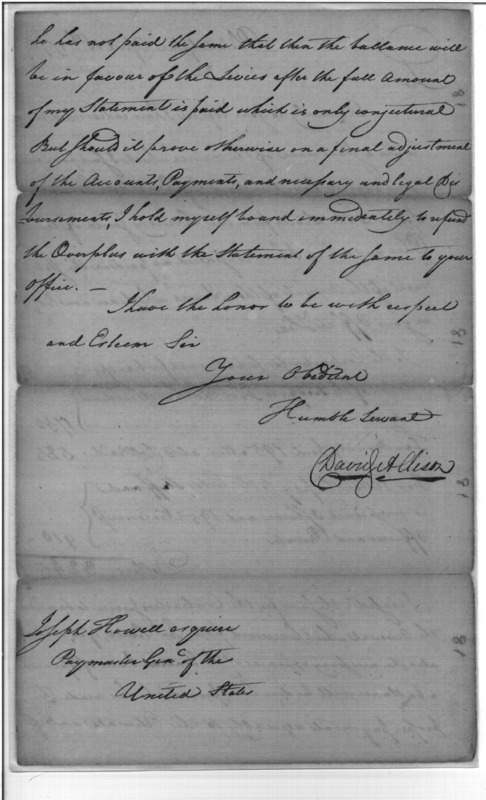 he has not paid the same that then the ballance will
be in favour of the Levies after the full amount
of my Statement is paid which is only conjectural
But should it prove otherwise on a final adjustment
of the Accounts, Payments, and necessary and legal Dis
bursements, I hold myself bound immediately to refund
the Overplus with the Statement of the same to your
office. —
I have the honor to be with respect
and Esteem Sir
Your Obedient
Humble Servant
David Allison
Joseph Howell esquire
Paymaster Genl of the
United States